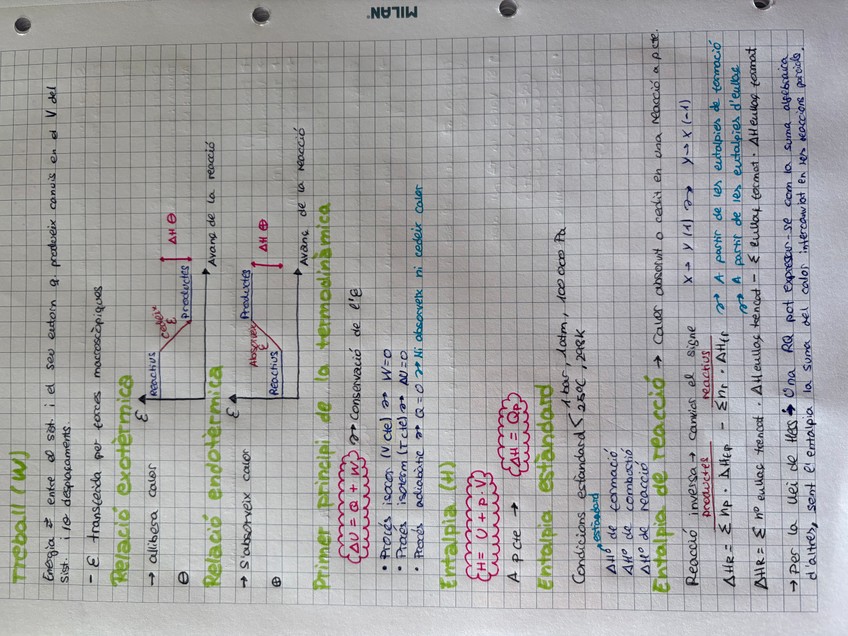 MILAN
Treball (W)
Energia ⇄ entre el sist. i el seu entorn q. produeix canvis en el V del
sist. i/o desplaçaments.
- E transferida per forces macroscòpiques
Relació exotèrmica
→ allibera calor
⊖
E
Reactius
Cedeix E
Productes
ΔH ⊖
Avanç de la reacció
Relació endotèrmica
→ S'absorveix calor
⊕
E
Absorveix E
Reactius
Productes
ΔH ⊕
Avanç de la reacció
Primer principi de la termodinàmica
ΔU = Q + W → Conservació de l'E
• Procés isocor (V cte) → W=0
• Procés isoterm (T cte) → ΔU=0
• Procés adiabàtic → Q=0 → Ni absorveix ni cedeix calor
Entalpia (H)
H = U + p·V
A p cte → ΔH = Qp
Entalpia estàndard
Condicions estàndard < 1 bar, 1 atm, 100 000 Pa
25ºC, 298K
estàndard
ΔHº de formació
ΔHº de combustió
ΔHº de reacció
Entalpia de reacció → Calor absorvit o cedit en una reacció a p cte.
Reacció inversa → canvies el signe X → Y (1) → Y → X (-1)
Productes reactius
ΔHR = Σ np · ΔHfp - Σ nr · ΔHfr → A partir de les entalpies de formació
→ A partir de les entalpies d'enllaç
ΔHR = Σ nº enllaç trencat · ΔH enllaç trencat - Σ enllaç format · ΔH enllaç format
→ Por la llei de Hess → Una RQ pot expressar-se com la suma algebraica
d'altres, sent l'entalpia la suma del calor intercanviat en les reaccions parcials.